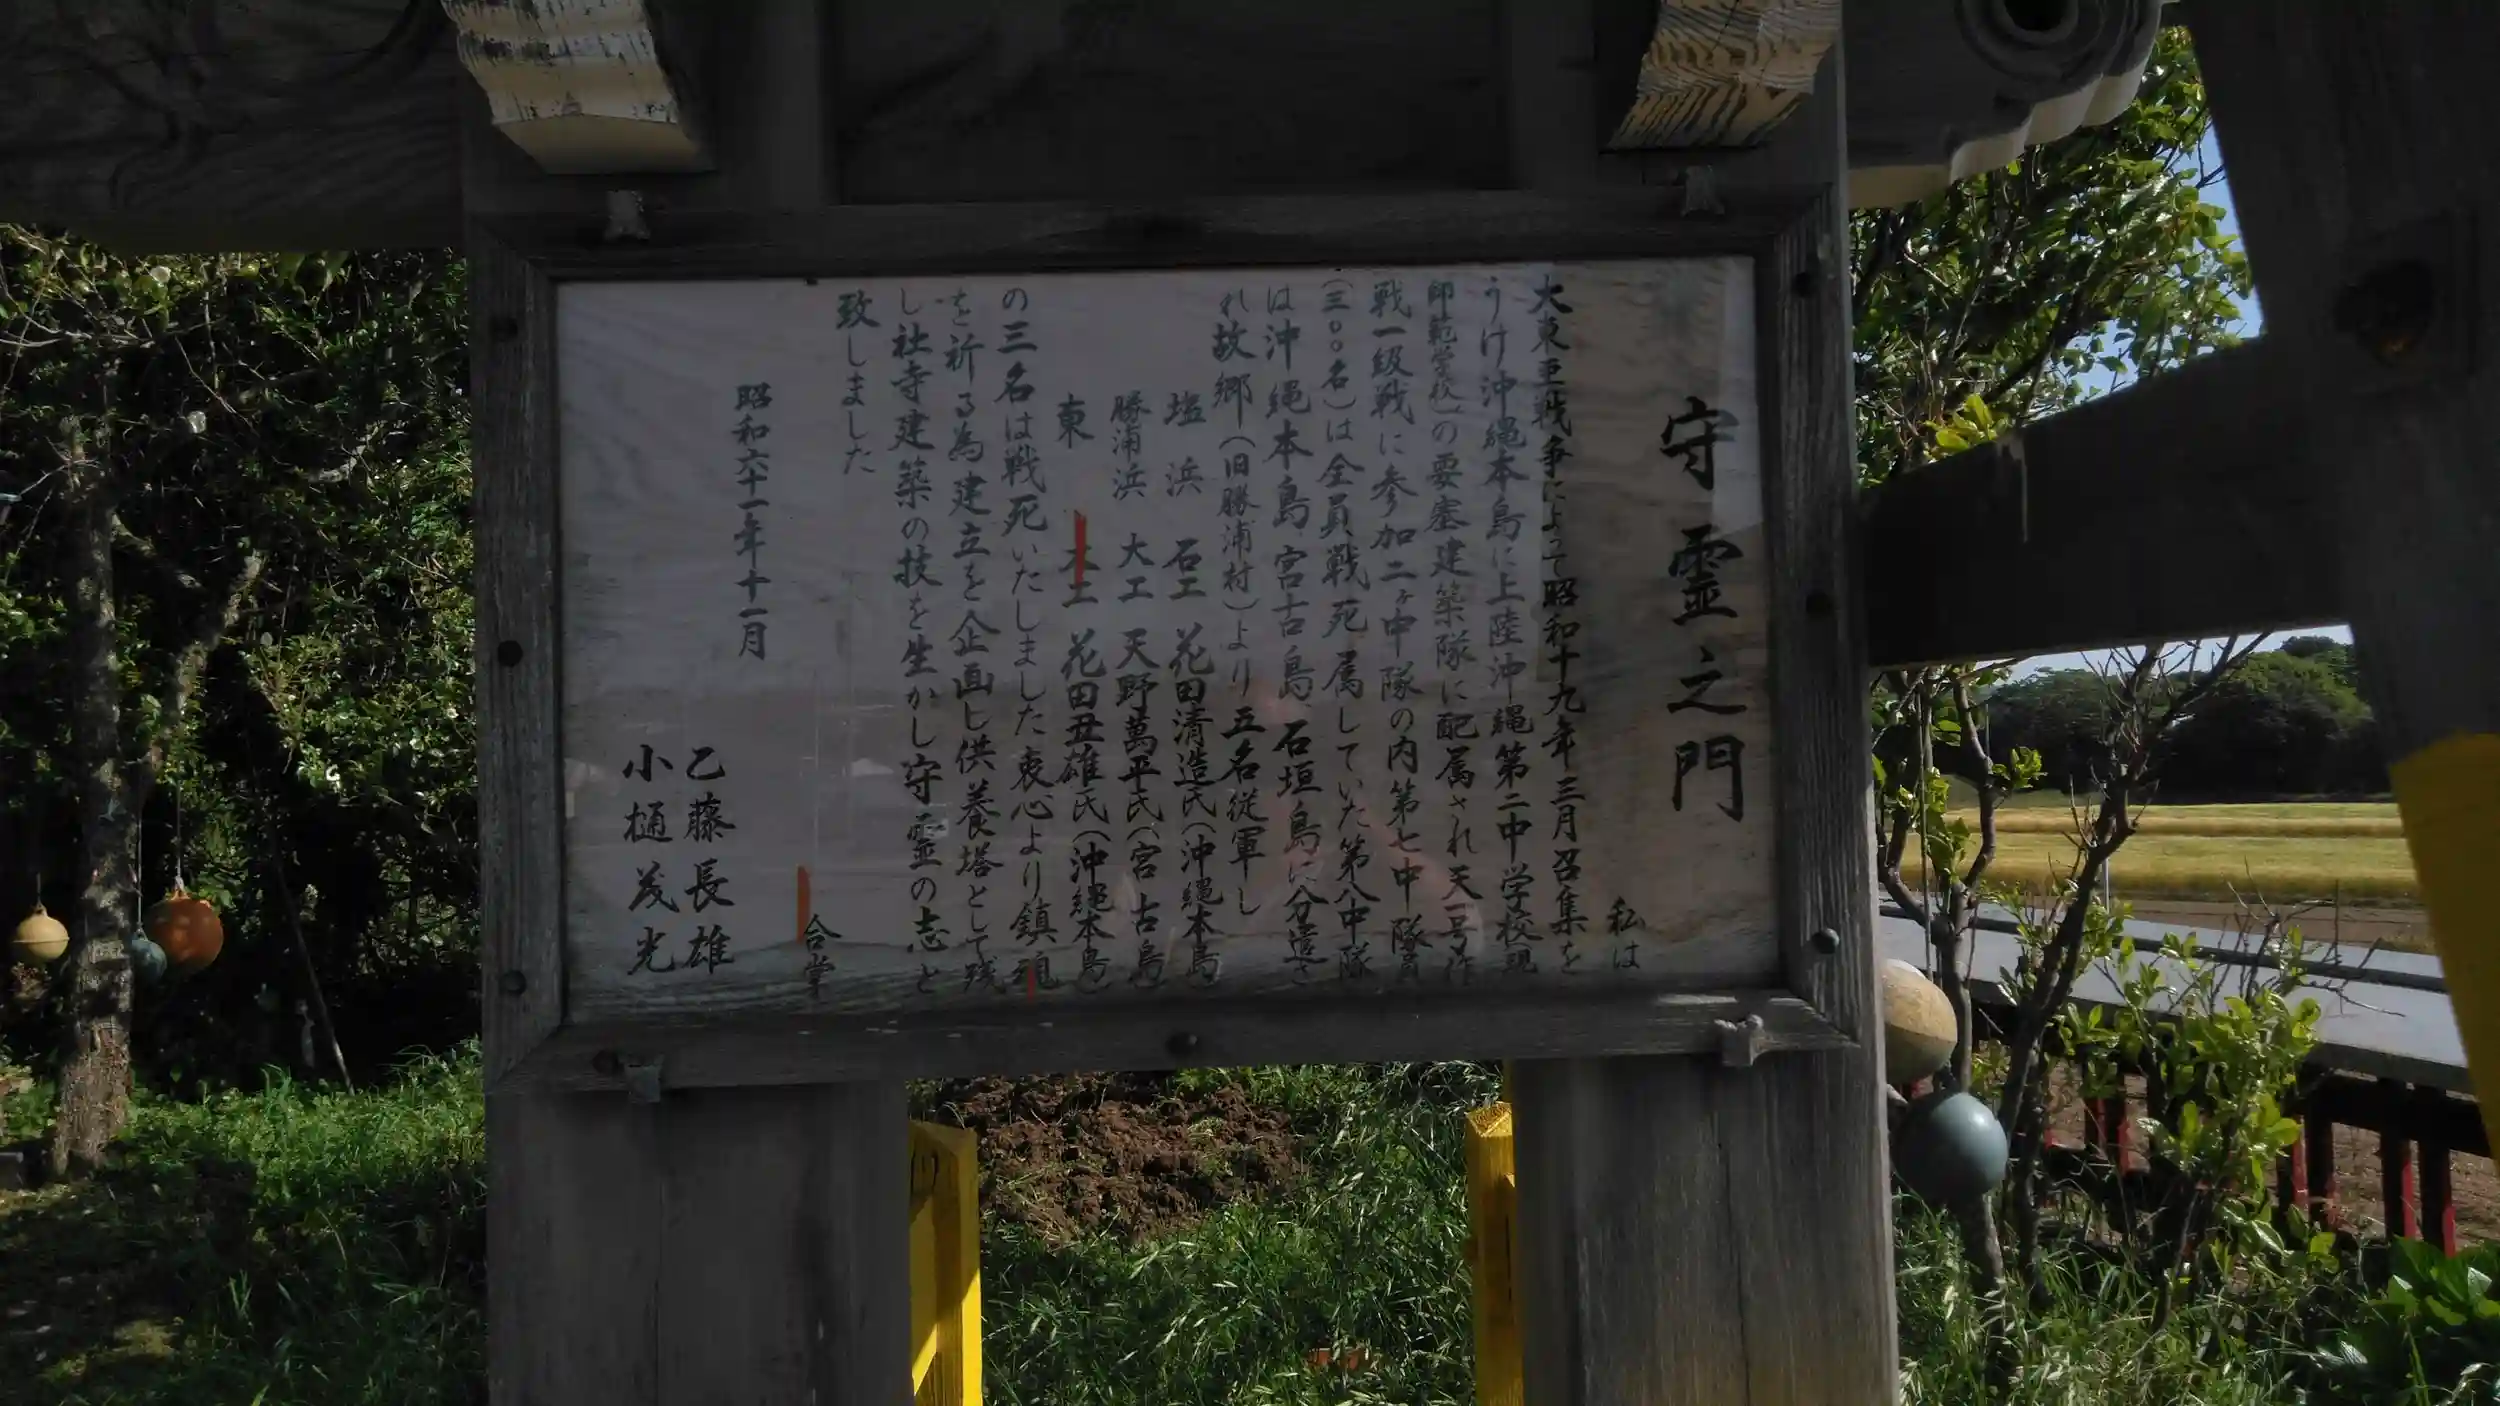 守霊之門
私は
大東亜戦争によって昭和十九年三月召集を
うけ沖縄本島に上陸沖縄第二中学校現
師範学校)の要塞建築隊に配属され天一号作
戦一級戦に参加二ヶ中隊の内第七中隊員
(三〇〇名)は全員戦死属していた第八中隊
は沖縄本島宮古島、石垣島に分遣さ
れ故郷(旧勝浦村)より五名従軍し
塩浜 石工 花田清造氏(沖縄本島)
勝浦浜 大工 天野萬平氏(宮古島)
東 木工 花田丑雄氏(沖縄本島)
の三名は戦死いたしました衷心より鎮魂
を祈る為建立を企画し供養塔として残
し社寺建築の技を生かし守霊の志と
致しました
合掌
昭和六十一年十一月
乙藤長雄
小樋茂光